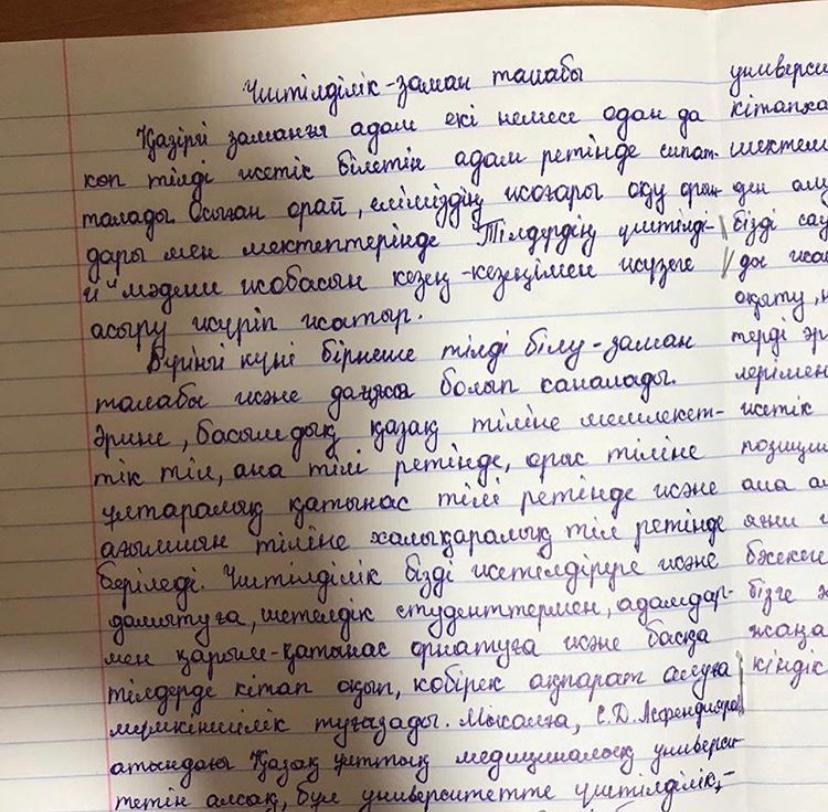 Үштілділік-заман талабы
Қазіргі заманғы адам екі немесе одан да
көп тілді жетік білетін адам ретінде сипат-
талады. Осыған орай, еліміздің жоғары оқу орын-
дары мен мектептерінде "Тілдердің үштілді-
й" мәдени жобасын кезең-кезеңімен жүзеге
асыру жүріп жатыр.
Бүгінгі күні бірнеше тілді білу-заман
талабы және даңғысы болып саналады.
Әрине, басымдық қазақ тіліне мемлекет-
тік тіл, ана тілі ретінде, орыс тіліне
ұлтаралық қатынас тілі ретінде және
ағылшын тіліне халықаралық тіл ретінде
беріледі. Үштілділік бізді жетелдіруге және
дамытуға, шетелдік студенттермен, адамдар-
мен қарым-қатынас орнатуға және басқа
тілдерде кітап оқып, көбірек ақпарат алуға
мүмкіншілік туғызады. Мысалға, С.Д. Асфендияров
атындағы Қазақ ұлттық медициналық универси-
тетін алсақ, бұл университетте үштілділік,-
универси
кітапха
шектем
ден алу
бізді сау
ды жа
оқыту, н
терді әр
лерімен
жетік
позици
ана а
яғни
бәсеке
бізге
жаңа
кіндік